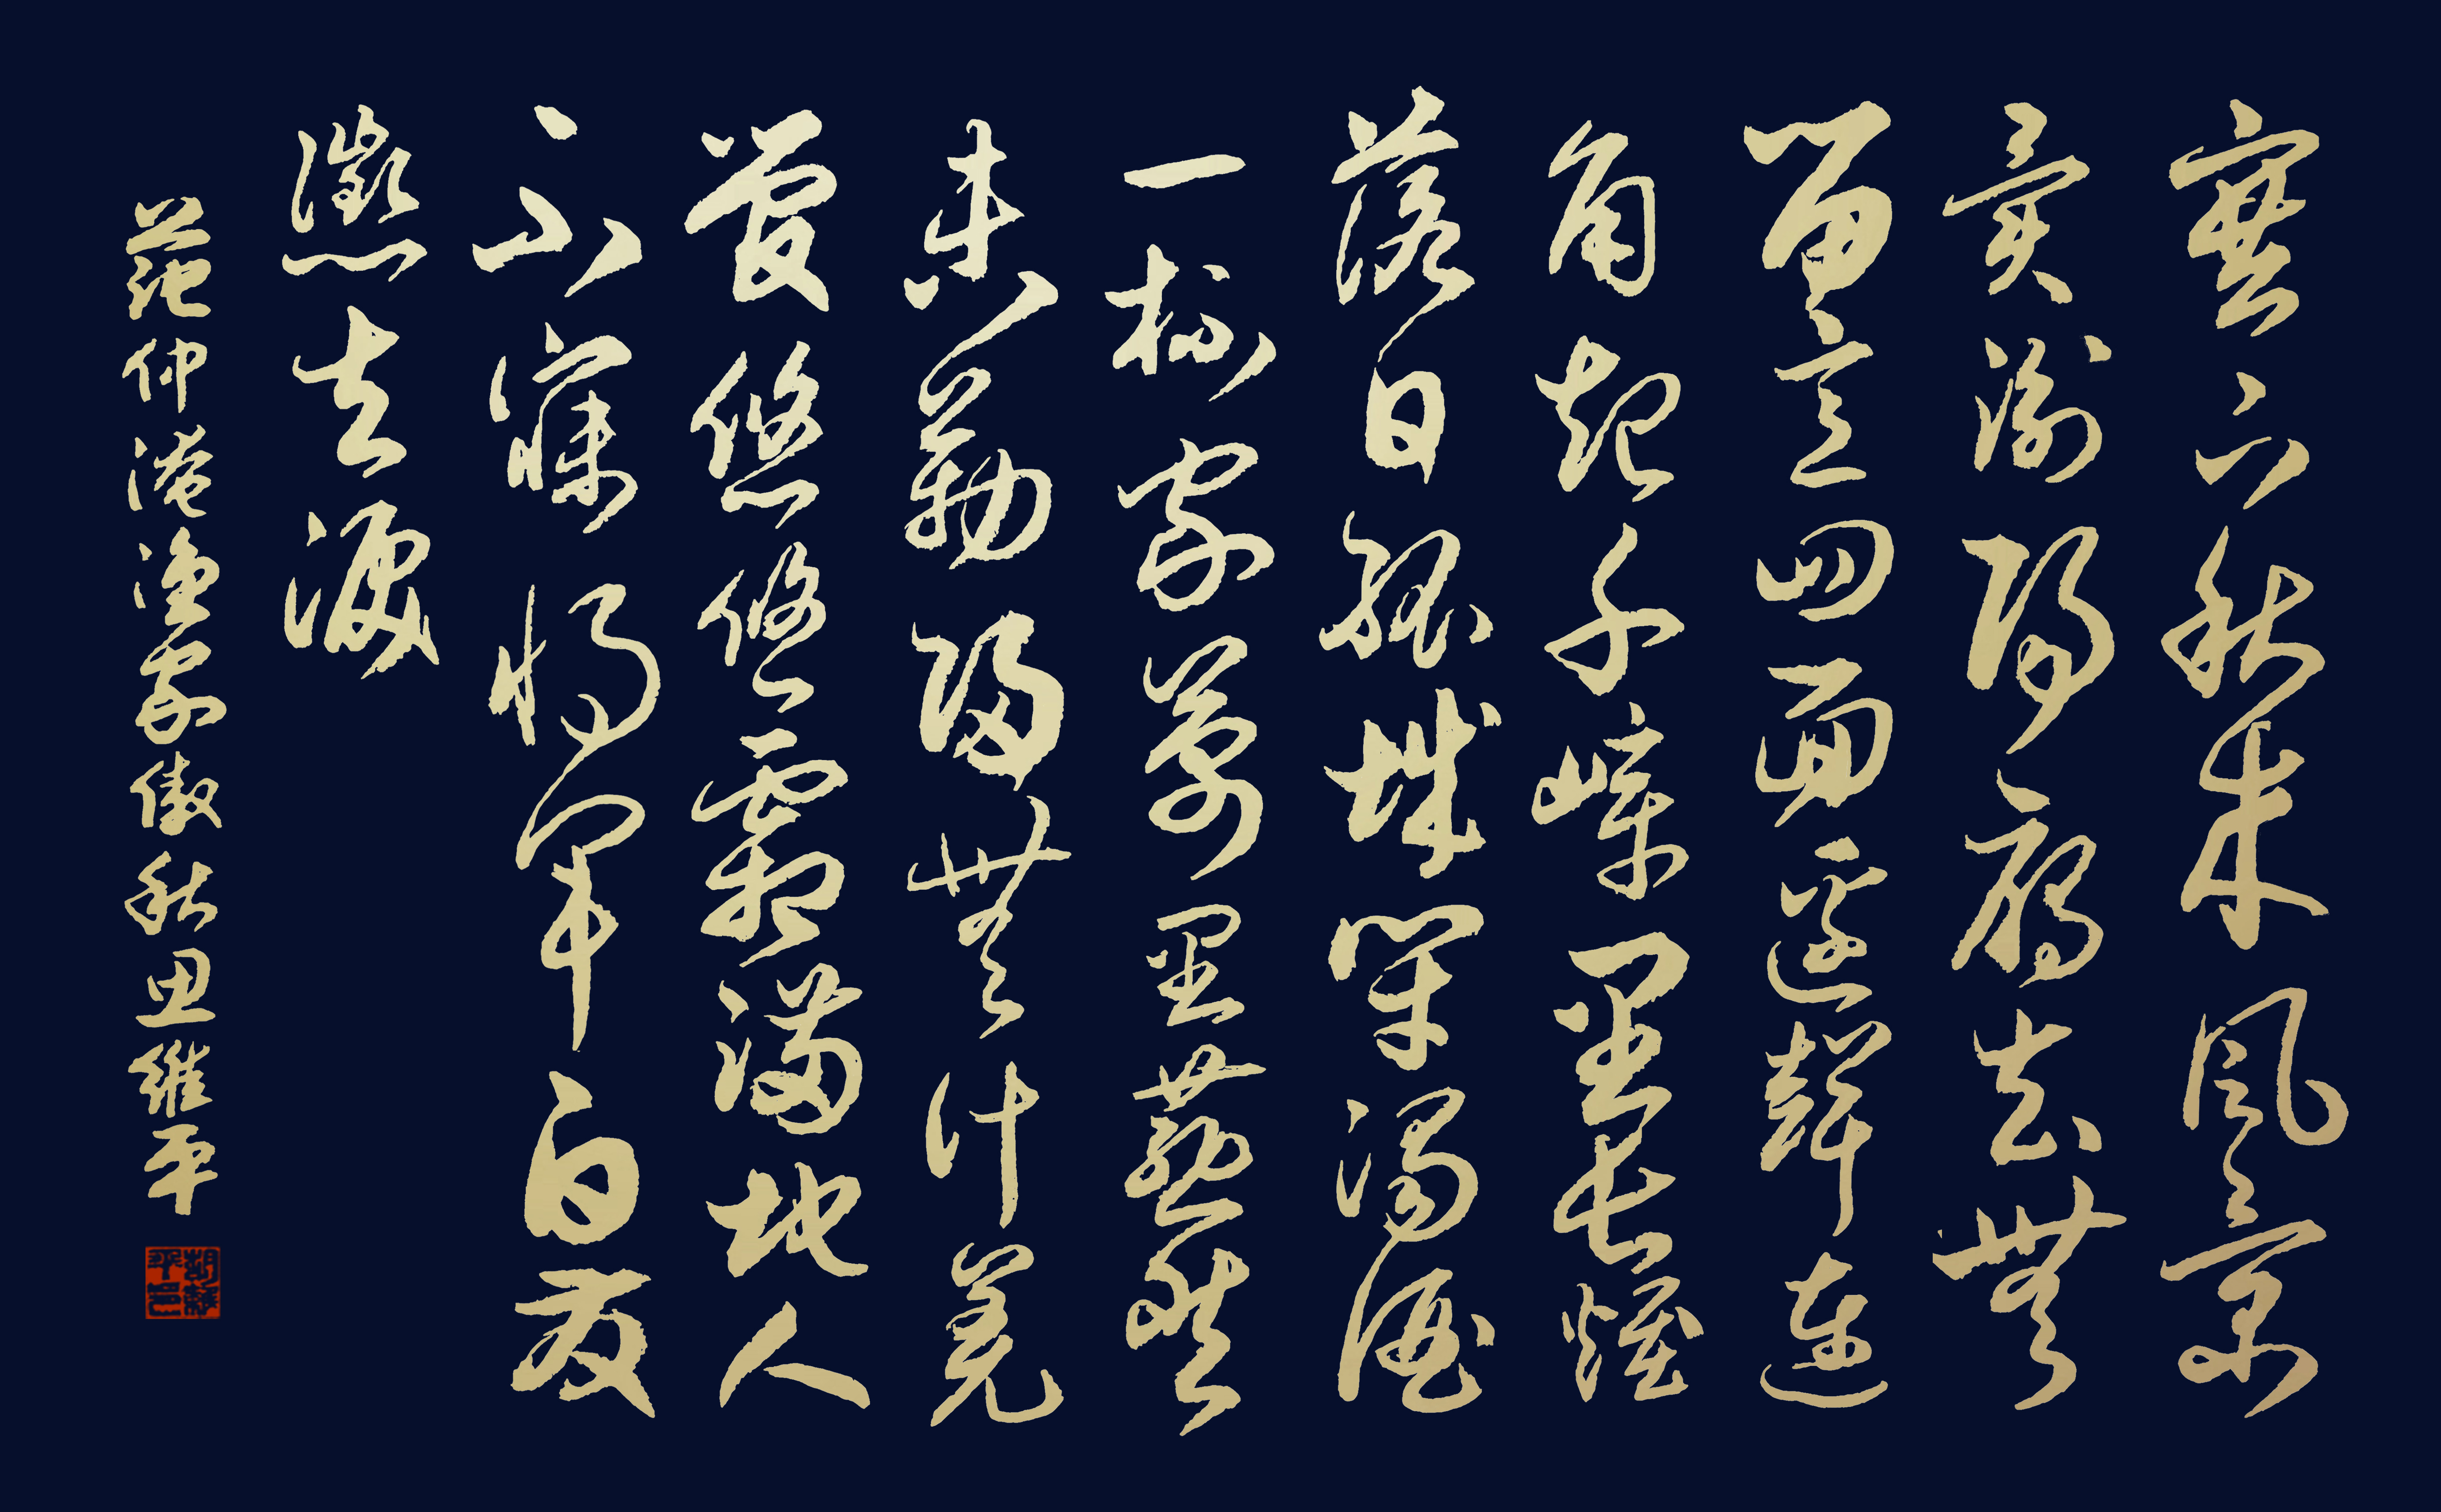 塞下秋來風景
異衡陽雁去無
留意四面邊聲連
角起千嶂里長煙
落日孤城閉濁酒
一杯家萬里燕然
未勒歸無計羌
管悠悠霜滿地人
不寐將軍白髮
征夫淚
范仲淹漁家傲秋思維平